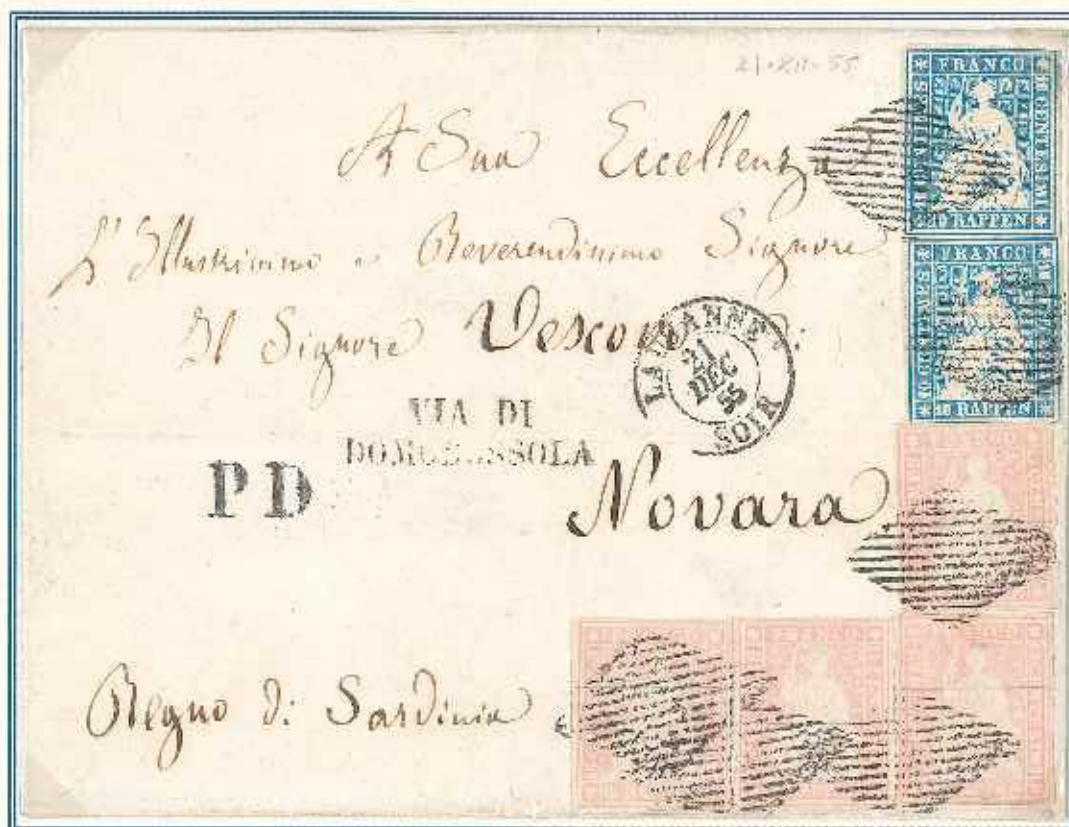 21.XII.55
A Sua Eccellenza
L'Illustrissimo e Reverendissimo Signore
Il Signore Vescovo di:
LAUSANNE
21
DEC
55
SOIR
VIA DI
DOMODOSSOLA
PD
Novara
Regno di Sardinia
FRANCO
10 CENTIMES
10 CENTESIMI
10 RAPPEN
FRANCO
10 CENTIMES
10 RAPPEN